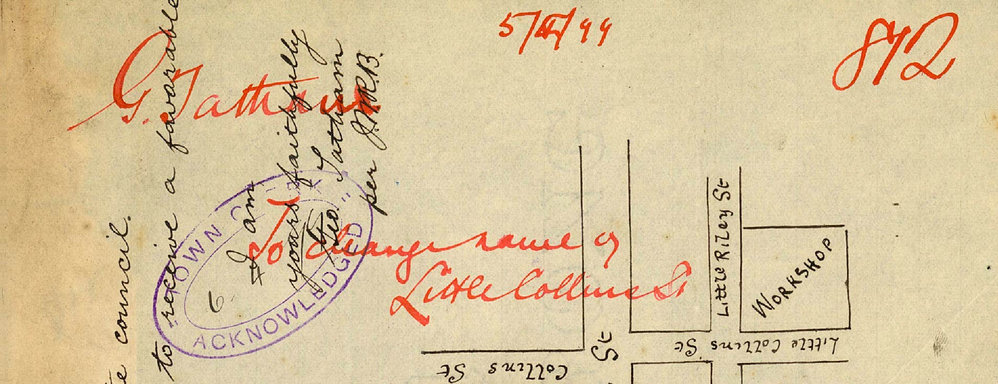 5/4/99
872
G. Tatham
To change name of
Little Collins St
to receive a favorable
the council.
I am
yours faithfully
Geo. Tatham
per J.W.R.B.
TOWN CLERK
ACKNOWLEDGED
Little Riley St
WORKSHOP
Collins St
St
Collins St
Little Collins St